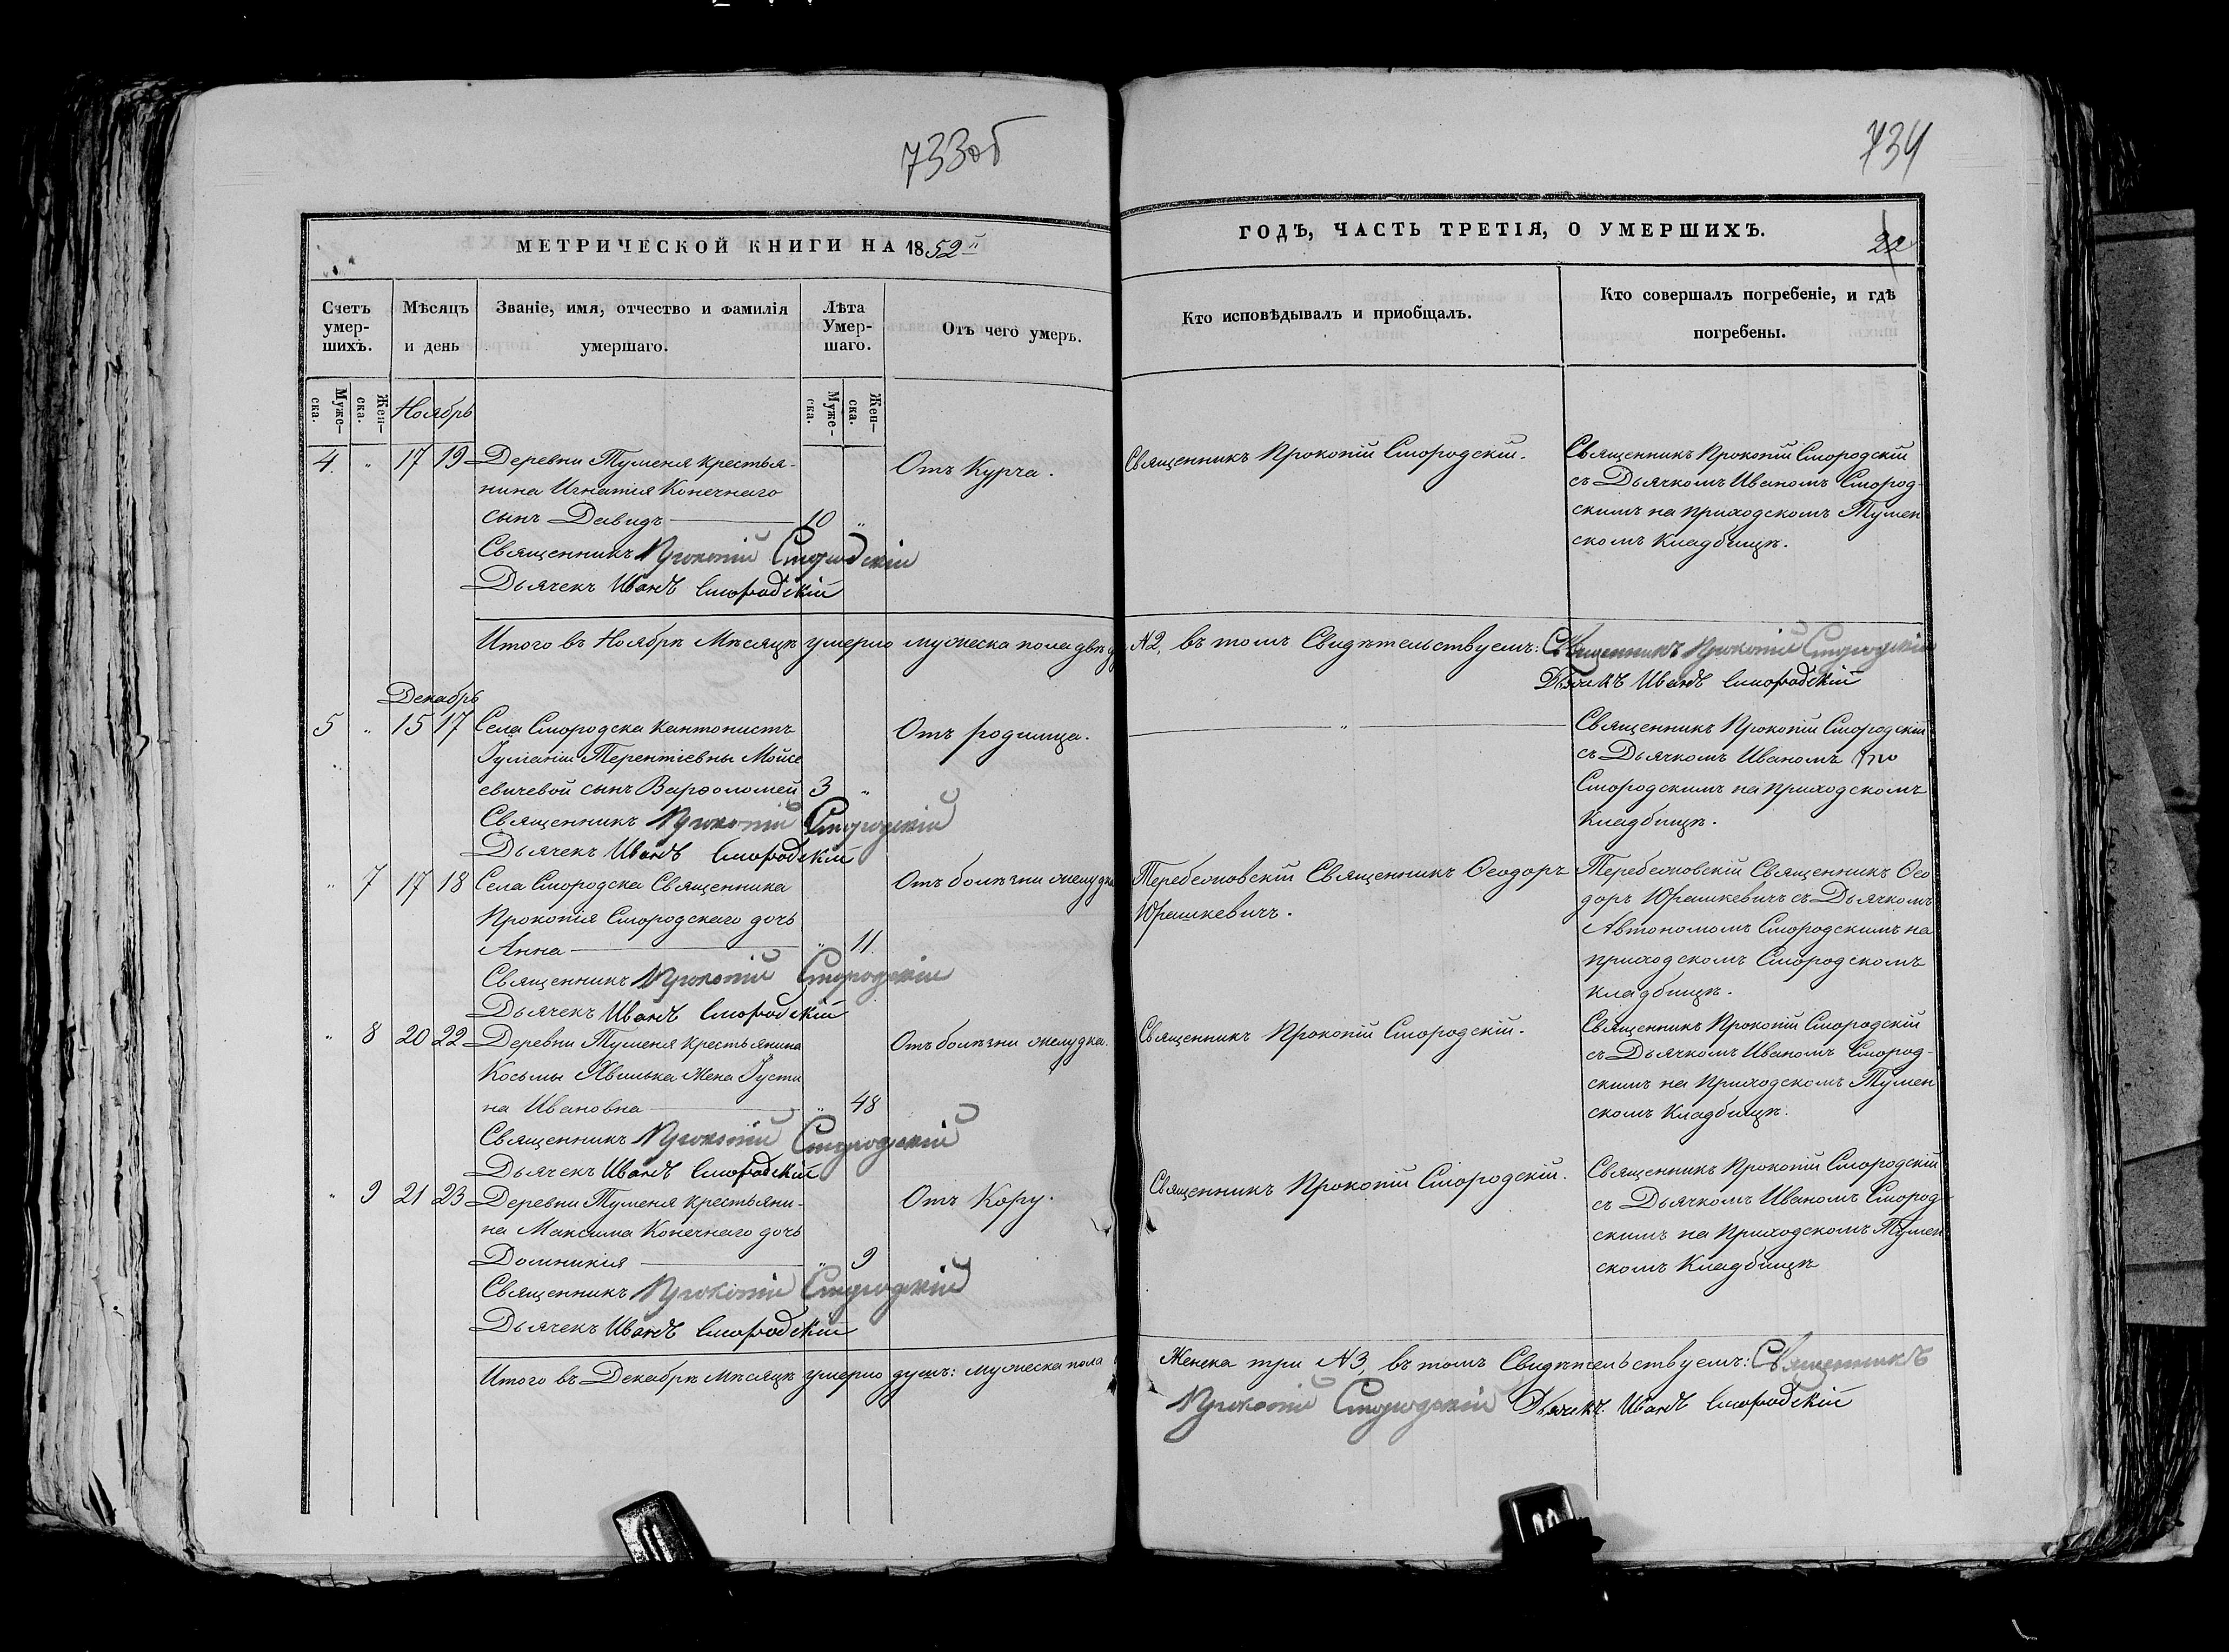 733об
МЕТРИЧЕСКОЙ КНИГИ НА 1852й
Счетъ умер-шихъ.
Мѣсяцъ и день
Званіе, имя, отчество и фамилія умершаго.
Лѣта Умер-шаго.
Отъ чего умеръ.
Муже-ска.
Жен-ска.
Ноябрь
Муже-ска.
Жен-ска.
4. " 17 19 Деревни Туменя крестья-
нина Игнатія Конечнаго
сынъ Давидъ 10 "
Отъ Курча.
Священникъ Прокопій Смородскій
Дьячекъ Иванъ Смородскій
Итого въ Ноябрѣ Мѣсяцѣ умерло мужеска пола двѣ
Декабрь
5 " 15 17 Села Смородска кантонистъ
Іуліаніи Терентіевны Мойсе
евичевой сынъ Варѳоломей 3 "
Отъ родимца.
Священникъ Прокопій Смородскій
Дьячекъ Иванъ Смородскій
" 7 17 18 Села Смородска Священника
Прокопія Смородскаго дочь
Анна " 11.
Отъ болѣзни желудка
Священникъ Прокопій Смородскій
Дьячекъ Иванъ Смородскій
" 8 20 22 Деревни Туменя крестьянина
Косьмы Явилька жена Іусти
на Ивановна " 48
Отъ болѣзни желудка.
Священникъ Прокопій Смородскій
Дьячекъ Иванъ Смородскій
" 9 21 23 Деревни Туменя крестьяни-
на Максима Конечнаго дочь
Домникія " 9
Отъ Кору.
Священникъ Прокопій Смородскій
Дьячекъ Иванъ Смородскій
Итого въ Декабрѣ мѣсяцѣ умерло душъ: мужеска пола
734
ГОДЪ, ЧАСТЬ ТРЕТІЯ, О УМЕРШИХЪ.
22
Кто исповѣдывалъ и приобщалъ.
Кто совершалъ погребеніе, и гдѣ
погребены.
Священникъ Прокопій Смородскій.
Священникъ Прокопій Смородскій
съ Дьячкомъ Иваномъ Смород-
скимъ на приходскомъ Тумен
скомъ Кладбищѣ.
N2, въ томъ Свидѣтельствуемъ: Священникъ Прокопій Смородскій
Дьячекъ Иванъ Смородскій
"
Священникъ Прокопій Смородскій
съ Дьячкомъ Иваномъ
Смородскимъ на приходскомъ
Кладбищѣ.
Теребежовскій Священникъ Ѳеодоръ
Юрашкевичъ.
Теребежовскій Священникъ Ѳео
доръ Юрашкевичъ съ Дьячкомъ
Автономомъ Смородскимъ на
приходскомъ Смородскомъ
кладбищѣ.
Священникъ Прокопій Смородскій.
Священникъ Прокопій Смородскій
съ Дьячкомъ Иваномъ Смород-
скимъ на Приходскомъ Тумен
скомъ Кладбищѣ.
Священникъ Прокопій Смородскій.
Священникъ Прокопій Смородскій
съ Дьячкомъ Иваномъ Смород-
скимъ на Приходскомъ Тумен
скомъ Кладбищѣ
Женска три N3, въ томъ Свидѣтельствуемъ: Священникъ
Прокопій Смородскій Дьячекъ Иванъ Смородскій